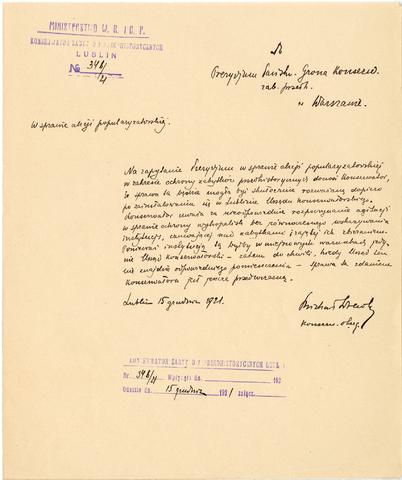 MINISTERSTWO W. R. i O. P.
KONSERWATOR ZABYTKÓW PRZEDHISTORYCZNYCH
LUBLIN
№ 346/21
Do
Prezydjum Państw. Grona Konserw.
zab. przedh.
w Warszawie.
W sprawie akcji popularyzatorskiej.
Na zapytanie Prezydjum w sprawie akcji popularyzatorskiej
w zakresie ochrony zabytków przedhistorycznych donosi Konserwator,
że sprawa ta będzie mogła być skutecznie rozważana dopiero
po zainstalowaniu się w Lublinie Urzędu konserwatorskiego.
Konserwator uważa za nieodpowiednie rozpoczynanie agitacji
w sprawie ochrony wykopalisk bez równoczesnego wskazywania
instytucji, czuwającej nad zabytkami i zajętej ich zbieraniem.
Ponieważ instytucją tą byłby w miejscowych warunkach jedy-
nie Urząd konserwatorski – zatem do chwili, kiedy Urząd ten
nie znajdzie odpowiedniego pomieszczenia – sprawa ta zdaniem
Konserwatora jest jeszcze przedwczesną.
Lublin 15 grudnia 1921.
konserw. okręg.
KONSERWATOR ZABYTKÓW PRZEDHISTORYCZNYCH
Nr. 346/21 Wpłynęło dn. 192
Odesłano dn. 15 grudnia 1921 załącz.